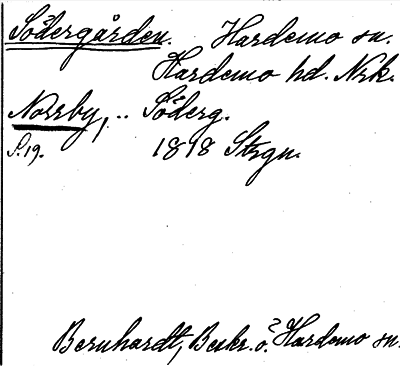 Södergården. Hardemo sn.
Hardemo hd. Nrk.
Norrby, .. Söderg.
S. 19. 1818 Strgn.
Bernhardt, Beskr. ö. Hardemo sn.